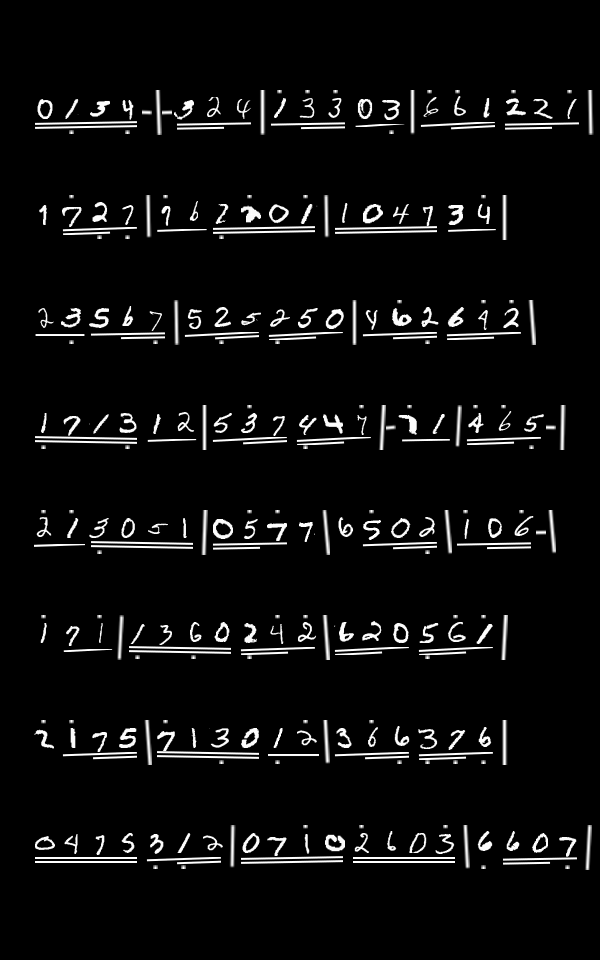 0 1 3 4 - | - 3 2 4 | 1 3 3 0 3 | 6 6 1 2 2 1 |
1 7 2 7 | 7 6 2 2 0 1 | 1 0 4 7 3 4 |
2 3 5 6 7 | 5 2 5 2 5 0 | 4 6 2 6 4 2 |
1 7 1 3 1 2 | 5 3 7 4 4 7 | - 7 1 | 4 6 5 - |
2 1 3 0 5 1 | 0 5 7 7 | 6 5 0 2 | 1 0 6 - |
1 7 1 | 1 3 6 0 2 4 2 | 6 2 0 5 6 1 |
2 1 7 5 | 7 1 3 0 1 2 | 3 6 6 3 7 6 |
0 4 7 5 3 1 2 | 0 7 1 0 2 6 0 3 | 6 6 0 7 |